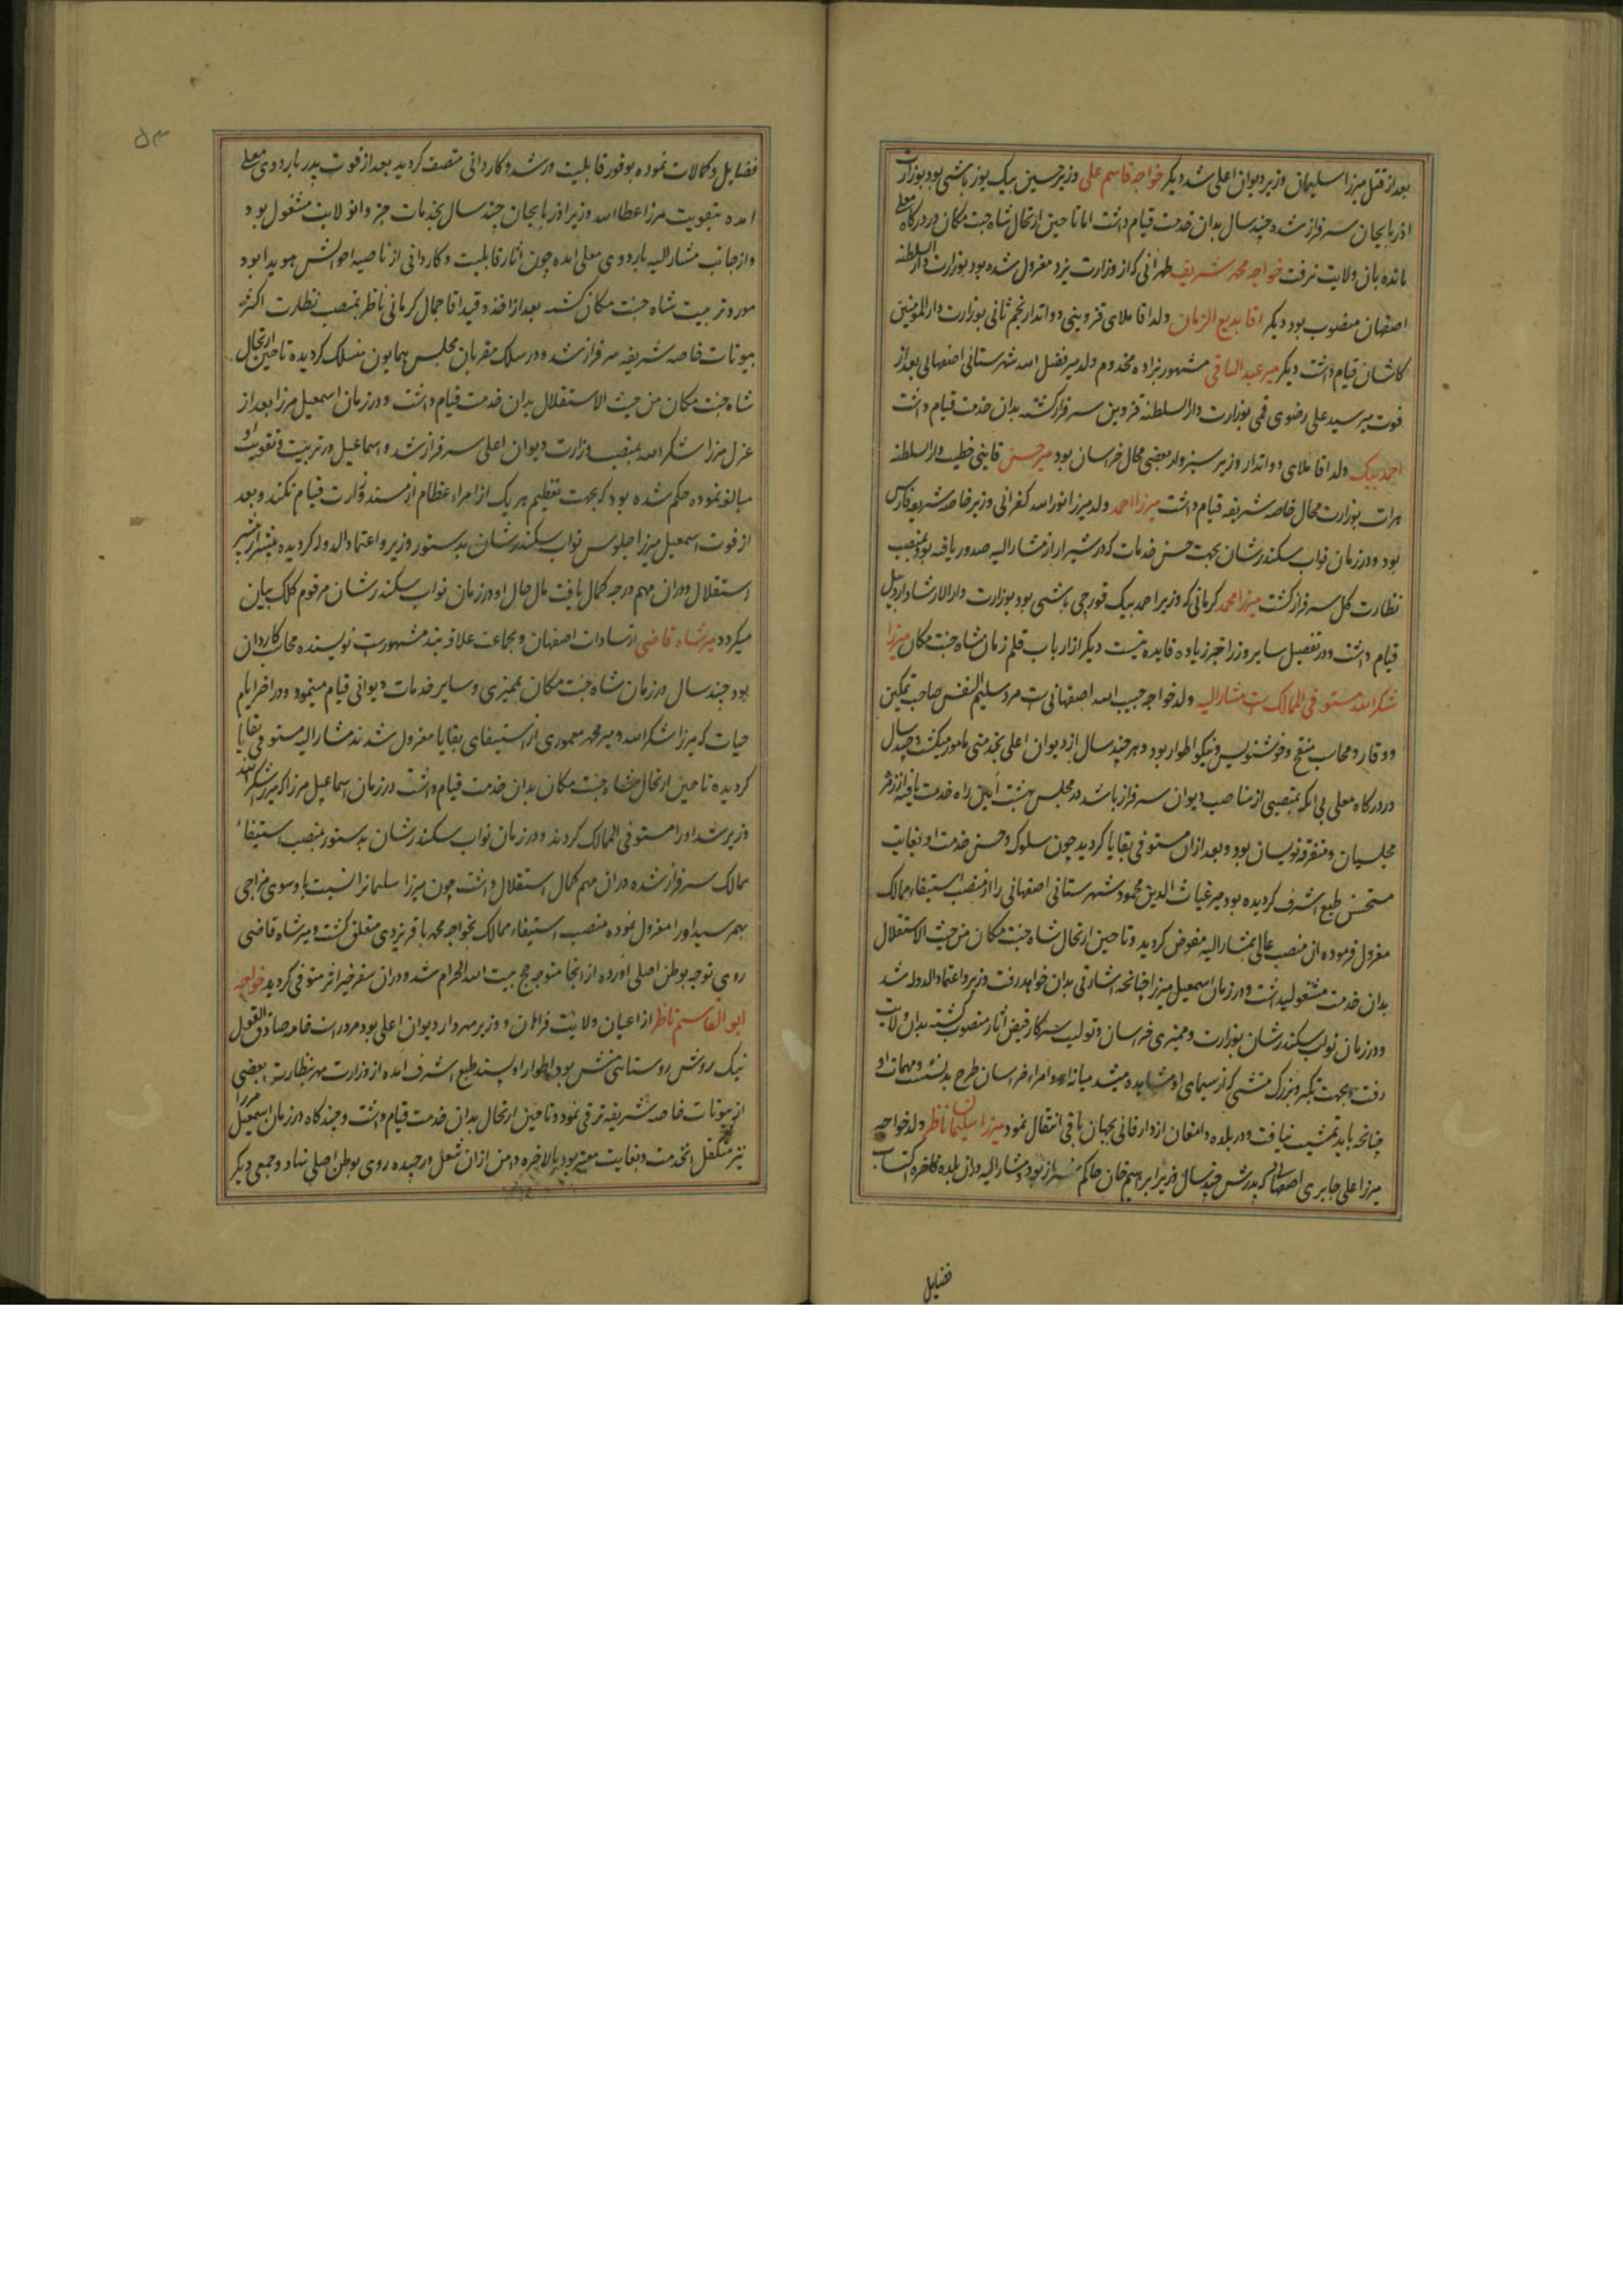 بعد از قتل میرزا سلیمان وزیر دیوان اعلی شد دیکر خواجه قاسم علی وزیر حسین بیک یوز باشی بود بوزارت
اذربایجان سرفراز شده چند سال بدان خدمت قیام داشت اما تا حین ارتحال شاه جنت مکان در درکاه معلی
مانده بان ولایت نرفت خواجه محمد شریف طهرانی که از وزارت یزد معزول شده بود بوزارت دار السلطنه
اصفهان منصوب بود دیکر اقا بدیع الزمان ولد اقا ملای قزوینی دواتدار نجم ثانی بوزارت دار المومنین
کاشان قیام داشت دیکر میر عبد الباقی مشهور بزاده مخدوم ولد میر فضل الله شهرستانی اصفهانی بعد از
فوت میر سید علی رضوی قمی بوزارت دار السلطنه قزوین سرفراز کشته بدان خدمت قیام داشت
احمد بیک ولد اقا ملای دواتدار وزیر سبزوار و بعضی محال خراسان بود میر حسن قاینی خطیب دار السلطنه
هرات بوزارت محال خاصه شریفه قیام داشت میرزا احمد ولد میرزا نور الله کفرانی وزیر خاصه شریفه فارس
بود و در زمان نواب سکندر شان بجهت حسن خدمات که در شیراز از مشار الیه صدور یافته بود بمنصب
نظارت کل سرفراز کشت میرزا محمد کرمانی که وزیر احمد بیک قورچی باشی بود بوزارت دار الارشاد اردبیل
قیام داشت و در تفصیل سایر وزرا خبر زیاده فایده نیست دیکر از ارباب قلم زمان شاه جنت مکان میرزا
شکر الله مستوفی الممالک است مشار الیه ولد خواجه حبیب الله اصفهانی است مرد سلیم النفس صاحب تمکین
و وقار و محاسب منقح و خوشنویس و نیکو اطوار بود و هر چند سال از دیوان اعلی بخدمتی مامور میکشت و چند سال
در درکاه معلی بی انکه بمنصبی از مناصب دیوان سرفراز باشد در مجلس بهشت آیین راه خدمت یافته از زمره
مجلسیان و متفرقه نویسان بود و بعد از ان مستوفی بقایا کردید چون سلوک و حسن خدمت او بغایت
مستحسن طبع اشرف کردیده بود میر غیاث الدین محمود شهرستانی اصفهانی را از منصب استیفاء ممالک
معزول فرموده ان منصب عالی بمشار الیه مفوض کردید و تا حین ارتحال شاه جنت مکان من حیث الاستقلال
بدان خدمت مشغولی داشت و در زمان اسمعیل میرزا چنانچه اشارتی بدان خواهد رفت وزیر و اعتماد الدوله شد
و در زمان نواب سکندر شان بوزارت و ممیزی خراسان و تولیت سرکار فیض اثار منصوب کشته بدان ولایت
رفت و بجهت تکبر و بزرک منشی که از سیمای او مشاهده میشد میانه او و امراء خراسان طرح بد نشست و مهمات او
چنانچه باید تمشیت نیافت و در بلده دامغان از دار فانی بجهان باقی انتقال نمود میرزا سلیمان ناظر ولد خواجه
میرزا علی جابری اصفهانی که پدرش چند سال وزیر ابراهیم خان حاکم شیراز بود و مشار الیه در ان بلده فاخره اکتساب
فضایل
۵۳
فضایل و کمالات نموده بوفور قابلیت و رشد و کاردانی متصف کردید بعد از فوت پدر باردوی معلی
امده بتقویت مرزا عطا الله وزیر اذربایجان چند سال بخدمات جزو انولایت مشغول بود
و از جانب مشار الیه باردوی معلی امده چون اثار قابلیت و کاردانی از ناصیه احوالش هویدا بود
مورد تربیت شاه جنت مکان کشته بعد از اخذ و قید اقا جمال کرمانی ناظر بمنصب نظارت اکثر
بیوتات خاصه شریفه سرفراز شد و در سلک مقربان مجلس همایون منسلک کردیده تا حین ارتحال
شاه جنت مکان من حیث الاستقلال بدان خدمت قیام داشت و در زمان اسمعیل مرزا بعد از
عزل میرزا شکر الله بمنصب وزارت دیوان اعلی سرفراز شد و اسماعیل در تربیت و تقویت او
مبالغه نموده حکم شده بود که بجهت تعظیم هر یک از امراء عظام از مسند وزارت قیام نکند و بعد
از فوت اسمعیل میرزا و جلوس نواب سکندر شان بدستور وزیر و اعتماد الدوله کردیده بیشتر از پیشتر
استقلال و در ان مهم درجه کمال یافت مال حال او در زمان نواب سکندر شان مرقوم کلک بیان
میکردد میر شاه قاضی از سادات اصفهان و بجماعت علاقه بند مشهور است نویسنده محاسب کاردان
بود چند سال در زمان شاه جنت مکان بممیزی و سایر خدمات دیوانی قیام مینمود و در اخر ایام
حیات که میرزا شکر الله و میر محمد معموری از استیفای بقایا معزول شدند مشار الیه مستوفی بقایا
کردیده تا حین ارتحال شاه جنت مکان بدان خدمت قیام داشت در زمان اسماعیل مرزا که میرزا شکر الله
وزیر شد او را مستوفی الممالک کردند و در زمان نواب سکندر شان بدستور بمنصب استیفاء
ممالک سرفراز شده در ان مهم کمال استقلال داشت چون میرزا سلمانرا نسبت باو سوی مزاجی
بهم رسید او را معزول نموده منصب استیفاء ممالک بخواجه محمد باقر یزدی متعلق کشت و میر شاه قاضی
روی توجه بوطن اصلی آورده از انجا متوجه حج بیت الله الحرام شد و در ان سفر خیر اثر متوفی کردید خواجه
ابو القاسم ناظر از اعیان ولایت فراهان و وزیر مهردار دیوان اعلی بود مرد راست خامه صادق القول
نیک روش روستائی منش بود اطوار او پسند طبع اشرف آمده از وزارت مهر بنظارت بعضی
از بیوتات خاصه شریفه ترقی نمود و تا حین ارتحال بدان خدمت قیام داشت و چند کاه در زمان اسمعیل مرزا
نیز متکفل انخدمت و بغایت معتبر بود بالاخره دامن از ان شغل در چیده روی بوطن اصلی نهاد و جمعی دیکر